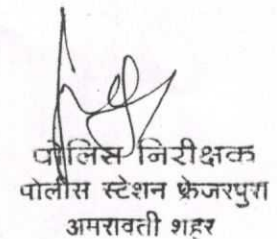 पोलिस निरीक्षक
पोलीस स्टेशन फ्रेजरपुरा
अमरावती शहर